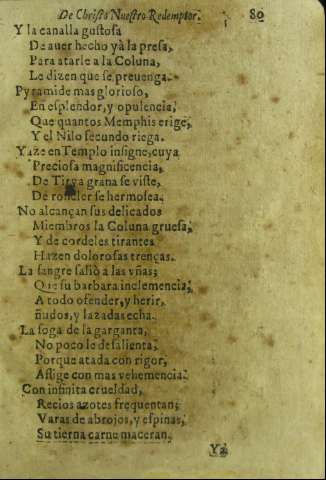 De Christo Nuestro Redemptor. 80
Y la canalla gustosa
De auer hecho yà la presa,
Para atarle a la Coluna,
Le dizen que se preuenga.
Pyramide mas glorioso,
En esplendor, y opulencia,
Que quantos Memphis erige,
Y el Nilo fecundo riega.
Yaze en Templo insigne, cuya
Preciosa magnificencia,
De Tirya grana se viste,
De rosicler se hermosea.
No alcançan sus delicados
Miembros la Coluna gruesa,
Y de cordeles tirantes
Hazen dolorosas trenças.
La sangre saliò a las vñas;
Que su barbara inclemencia,
A todo ofender, y herir,
ñudos, y lazadas echa.
La soga de la garganta,
No poco le desalienta,
Porque atada con rigor,
Aflige con mas vehemencia.
Con infinita crueldad,
Recios azotes frequentan;
Varas de abrojos, y espinas,
Su tierna carne maceran.
Ya